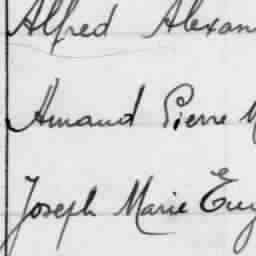 Alfred Alexan
Armand Pierre M
Joseph Marie Eug